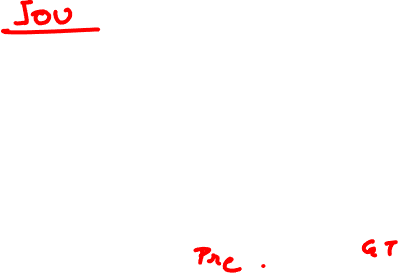 IOU
Pre. GT